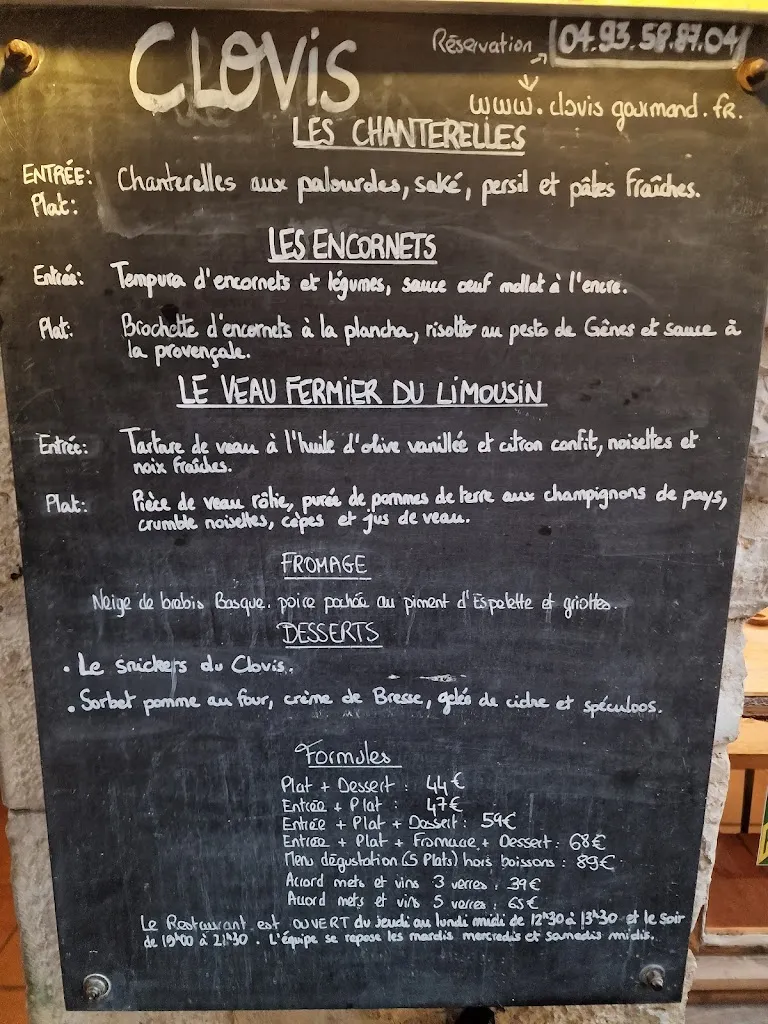 CLOVIS
Réservation 04.93.58.87.04
www.clovis gourmand.fr.
LES CHANTERELLES
ENTRÉE: Chanterelles aux palourdes, saké, persil et pâtes fraîches.
Plat:
LES ENCORNETS
Entrée: Tempura d'encornets et légumes, sauce œuf mollet à l'encre.
Plat: Brochette d'encornets à la plancha, risotto au pesto de Gênes et sauce à
la provençale.
LE VEAU FERMIER DU LIMOUSIN
Entrée: Tartare de veau à l'huile d'olive vanillée et citron confit, noisettes et
noix fraîches.
Plat: Pièce de veau rôtie, purée de pommes de terre aux champignons de pays,
crumble noisettes, cèpes et jus de veau.
FROMAGE
Neige de brebis Basque, poire pochée au piment d'Espelette et griottes.
DESSERTS
• Le snickers du Clovis.
• Sorbet pomme au four, crème de Bresse, gelée de cidre et spéculoos.
Formules
Plat + Dessert : 44€
Entrée + Plat : 47€
Entrée + Plat + Dessert : 59€
Entrée + Plat + Fromage + Dessert : 68€
Menu dégustation (5 Plats) hors boissons : 89€
Accord mets et vins 3 verres : 39€
Accord mets et vins 5 verres : 65€
Le Restaurant est OUVERT du jeudi au lundi midi de 12h30 à 13h30 et le soir
de 19h00 à 21h30. L'équipe se repose les mardis mercredis et samedis midis.